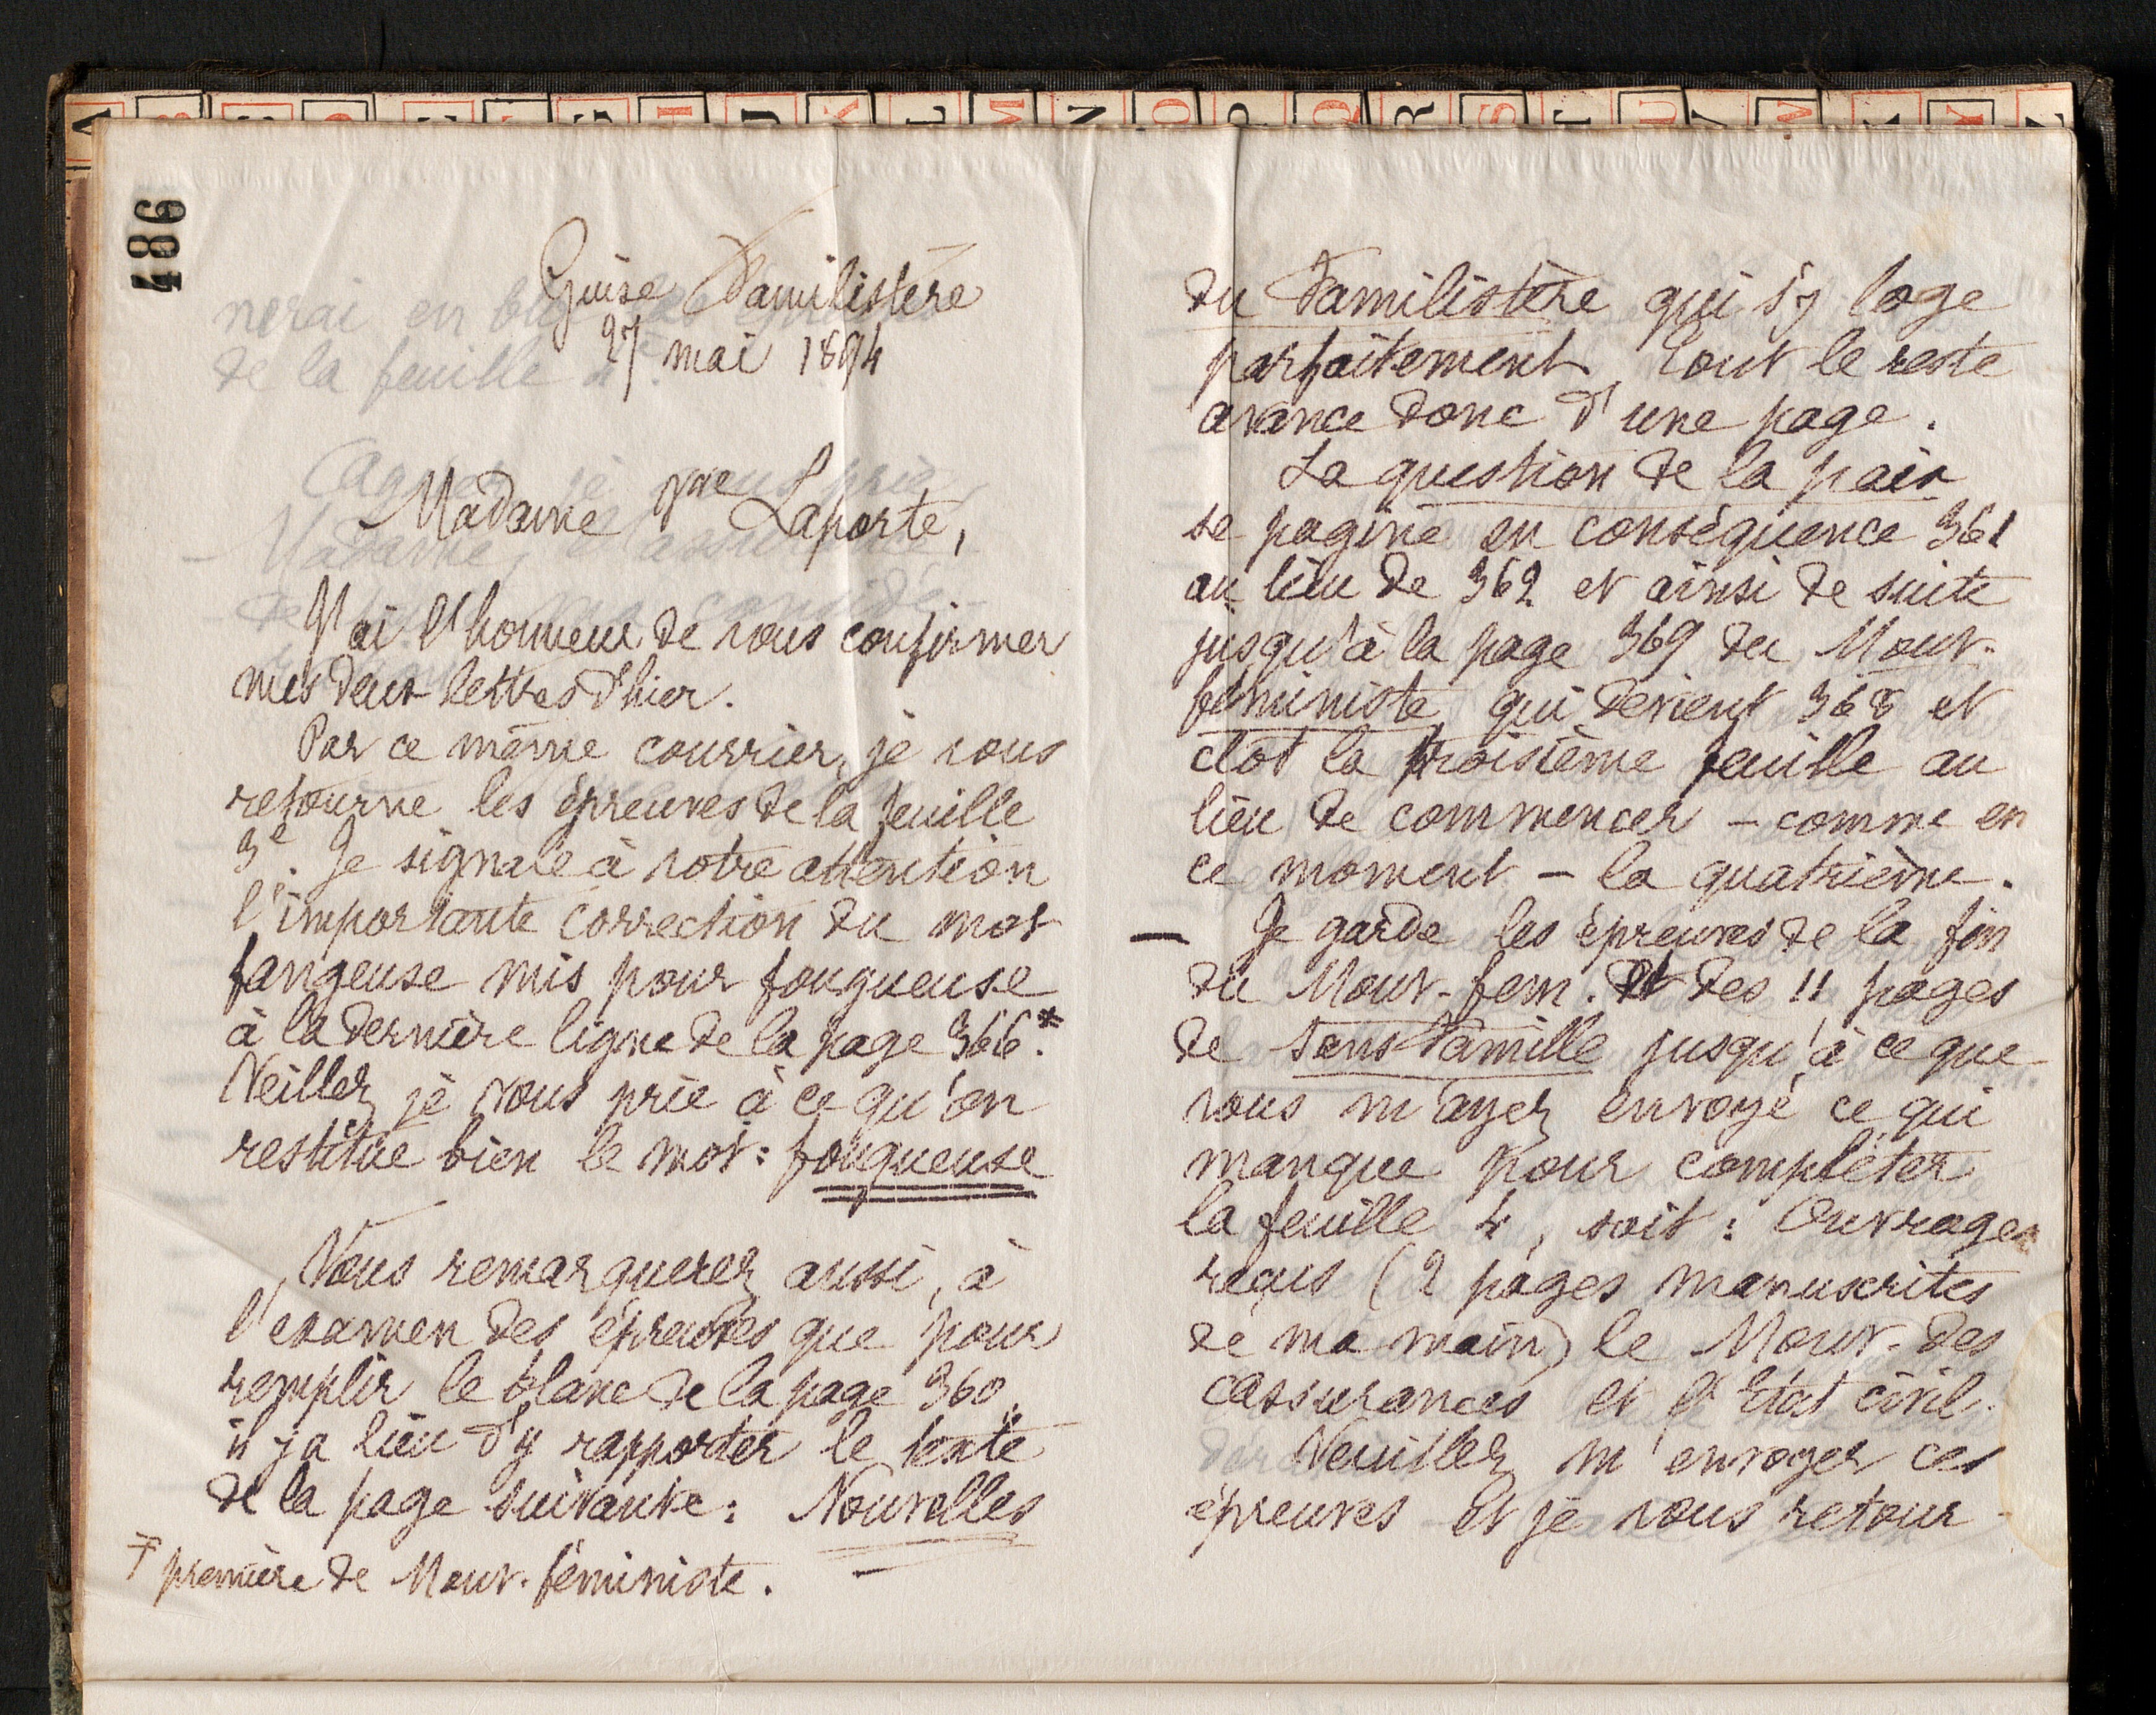 486
Guise Familistère
27 mai 1894
Madame Vve Laporte,
J'ai l'honneur de vous confirmer
mes deux lettres d'hier.
Par ce même courrier, je vous
retourne les épreuves de la feuille
3e. Je signale à votre attention
l'importante correction du mot
fangeuse mis pour fougueuse
à la dernière ligne de la page 366.*
Veillez je vous prie à ce qu'on
restitue bien le mot: fougueuse
Vous remarquerez aussi, à
l'examen des épreuves que pour
remplir le blanc de la page 360,
il y a lieu d'y rapporter le texte
de la page suivante: Nouvelles
* première de Mouv. féministe.
du Familistère qui s'y loge
parfaitement. Tout le reste
avance donc d'une page.
La question de la paix
se pagine en conséquence 361
au lieu de 362 et ainsi de suite
jusqu'à la page 369 du Mouv-
féministe qui devient 368 et
clot la troisième feuille au
lieu de commencer - comme en
ce moment - la quatrième.
— Je garde les épreuves de la fin
du Mouv-fem. et des 11 pages
de Sans Famille jusqu'à ce que
vous m'ayez envoyé ce qui
manque pour compléter
la feuille 4, soit: Ouvrages
reçus (2 pages manuscrites
de ma main) le Mouv. des
assurances et l'Etat civil.
Veuillez m'envoyer ces
épreuves et je vous retour-